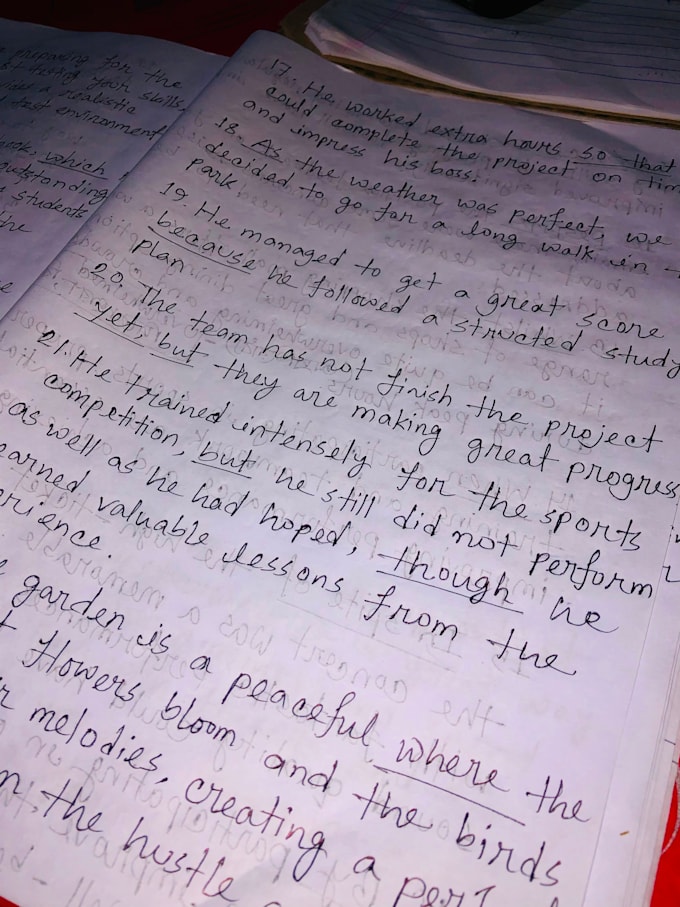 preparing for the
testing your skills,
a realistic
test environment
which
outstanding
students
the
17. He worked extra hours so that
could complete the project on time
and impress his boss.
18. As the weather was perfect, we
decided to go for a long walk in
park.
19. He managed to get a great score
because he followed a structed study
plan.
20. The team has not finish the project
yet, but they are making great progress
21. He trained intensely for the sports
competition, but he still did not perform
as well as he had hoped, though he
earned valuable lessons from the
erience.
garden is a peaceful where the
flowers bloom and the birds
melodies, creating a
the hustle